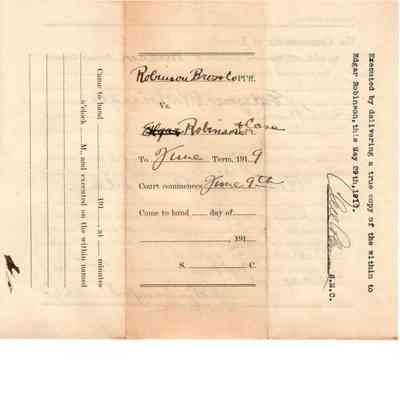 Came to hand 191 at minutes
o'clock M., and executed on the within named
Robinson Bros Co PPff.
Vs.
Edgar Robinson & Co
To June Term, 1919
Court commences June 9th
Came to hand day of
, 191
S. C.
Executed by delivering a true copy of the within to
Edgar Robinson, this May 29th, 1919.
S.M.C.